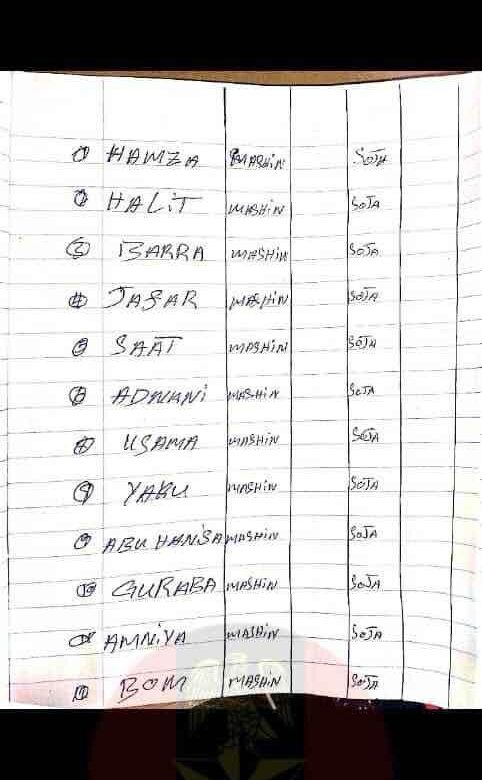 ① HAMZA MASHiN SOJA
② HALiT MASHiN SOJA
③ BARRA MASHiN SOJA
④ JAFAR MASHiN SOJA
⑤ SAAT MASHiN SOJA
⑥ ADNANi MASHiN SOJA
⑦ USAMA MASHiN SOJA
YAKU MASHiN SOJA
⑨ ABU HANiSA MASHiN SOJA
⑩ GURABA MASHiN SOJA
AMNiYA MASHiN SOJA
BOM MASHiN SOJA